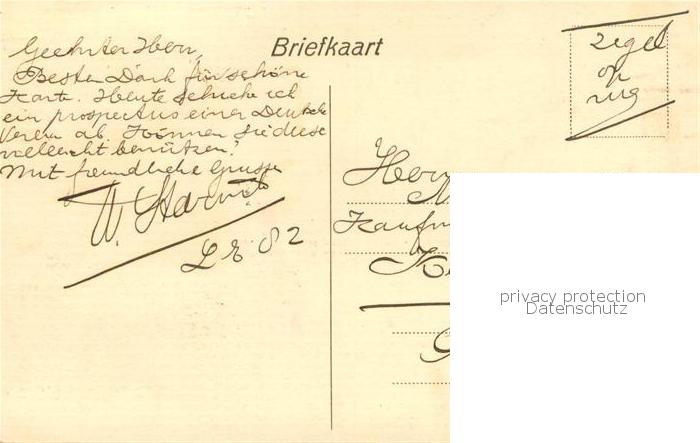 Briefkaart
Geehrter Herr,
Besten Dank für schöne
Karte. Heute schicke ich
ein prospectus einer Deutsche
Verein ab. Können Sie diese
vielleicht benützen?
Mit freundliche Grusse
W.
L E 82
zegel
op
rug
Herrn
Kaufm
privacy protection
Datenschutz